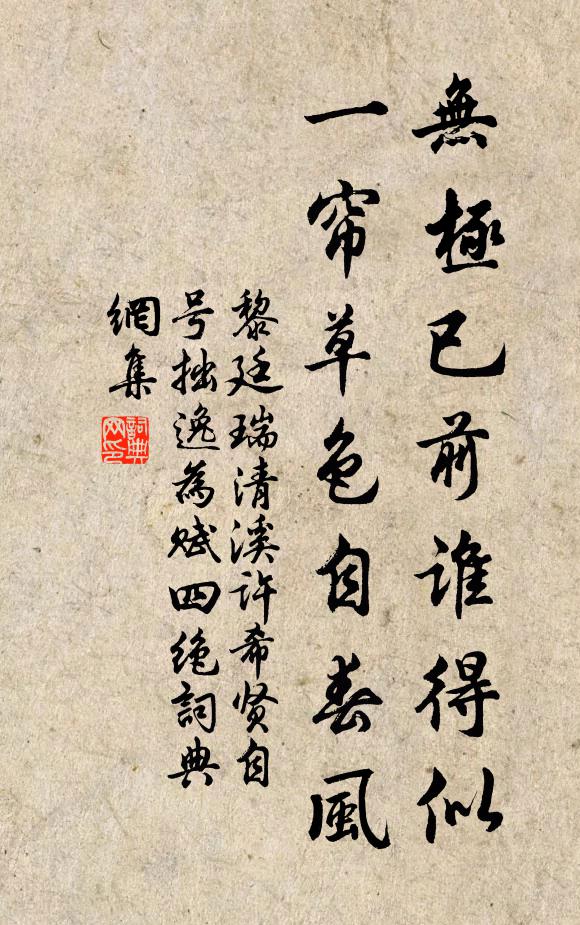 無極已前誰得似
一帘草色自春風
黎廷瑞清溪许希贤自
号拙逸為赋四绝詞典
網集
詞典
网印